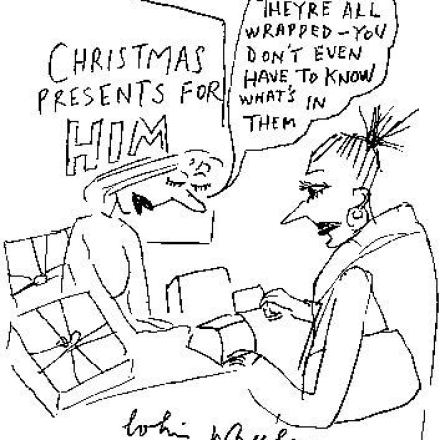 CHRISTMAS
PRESENTS FOR
HIM
THEYRE ALL
WRAPPED – YOU
DON'T EVEN
HAVE TO KNOW
WHAT'S IN
THEM